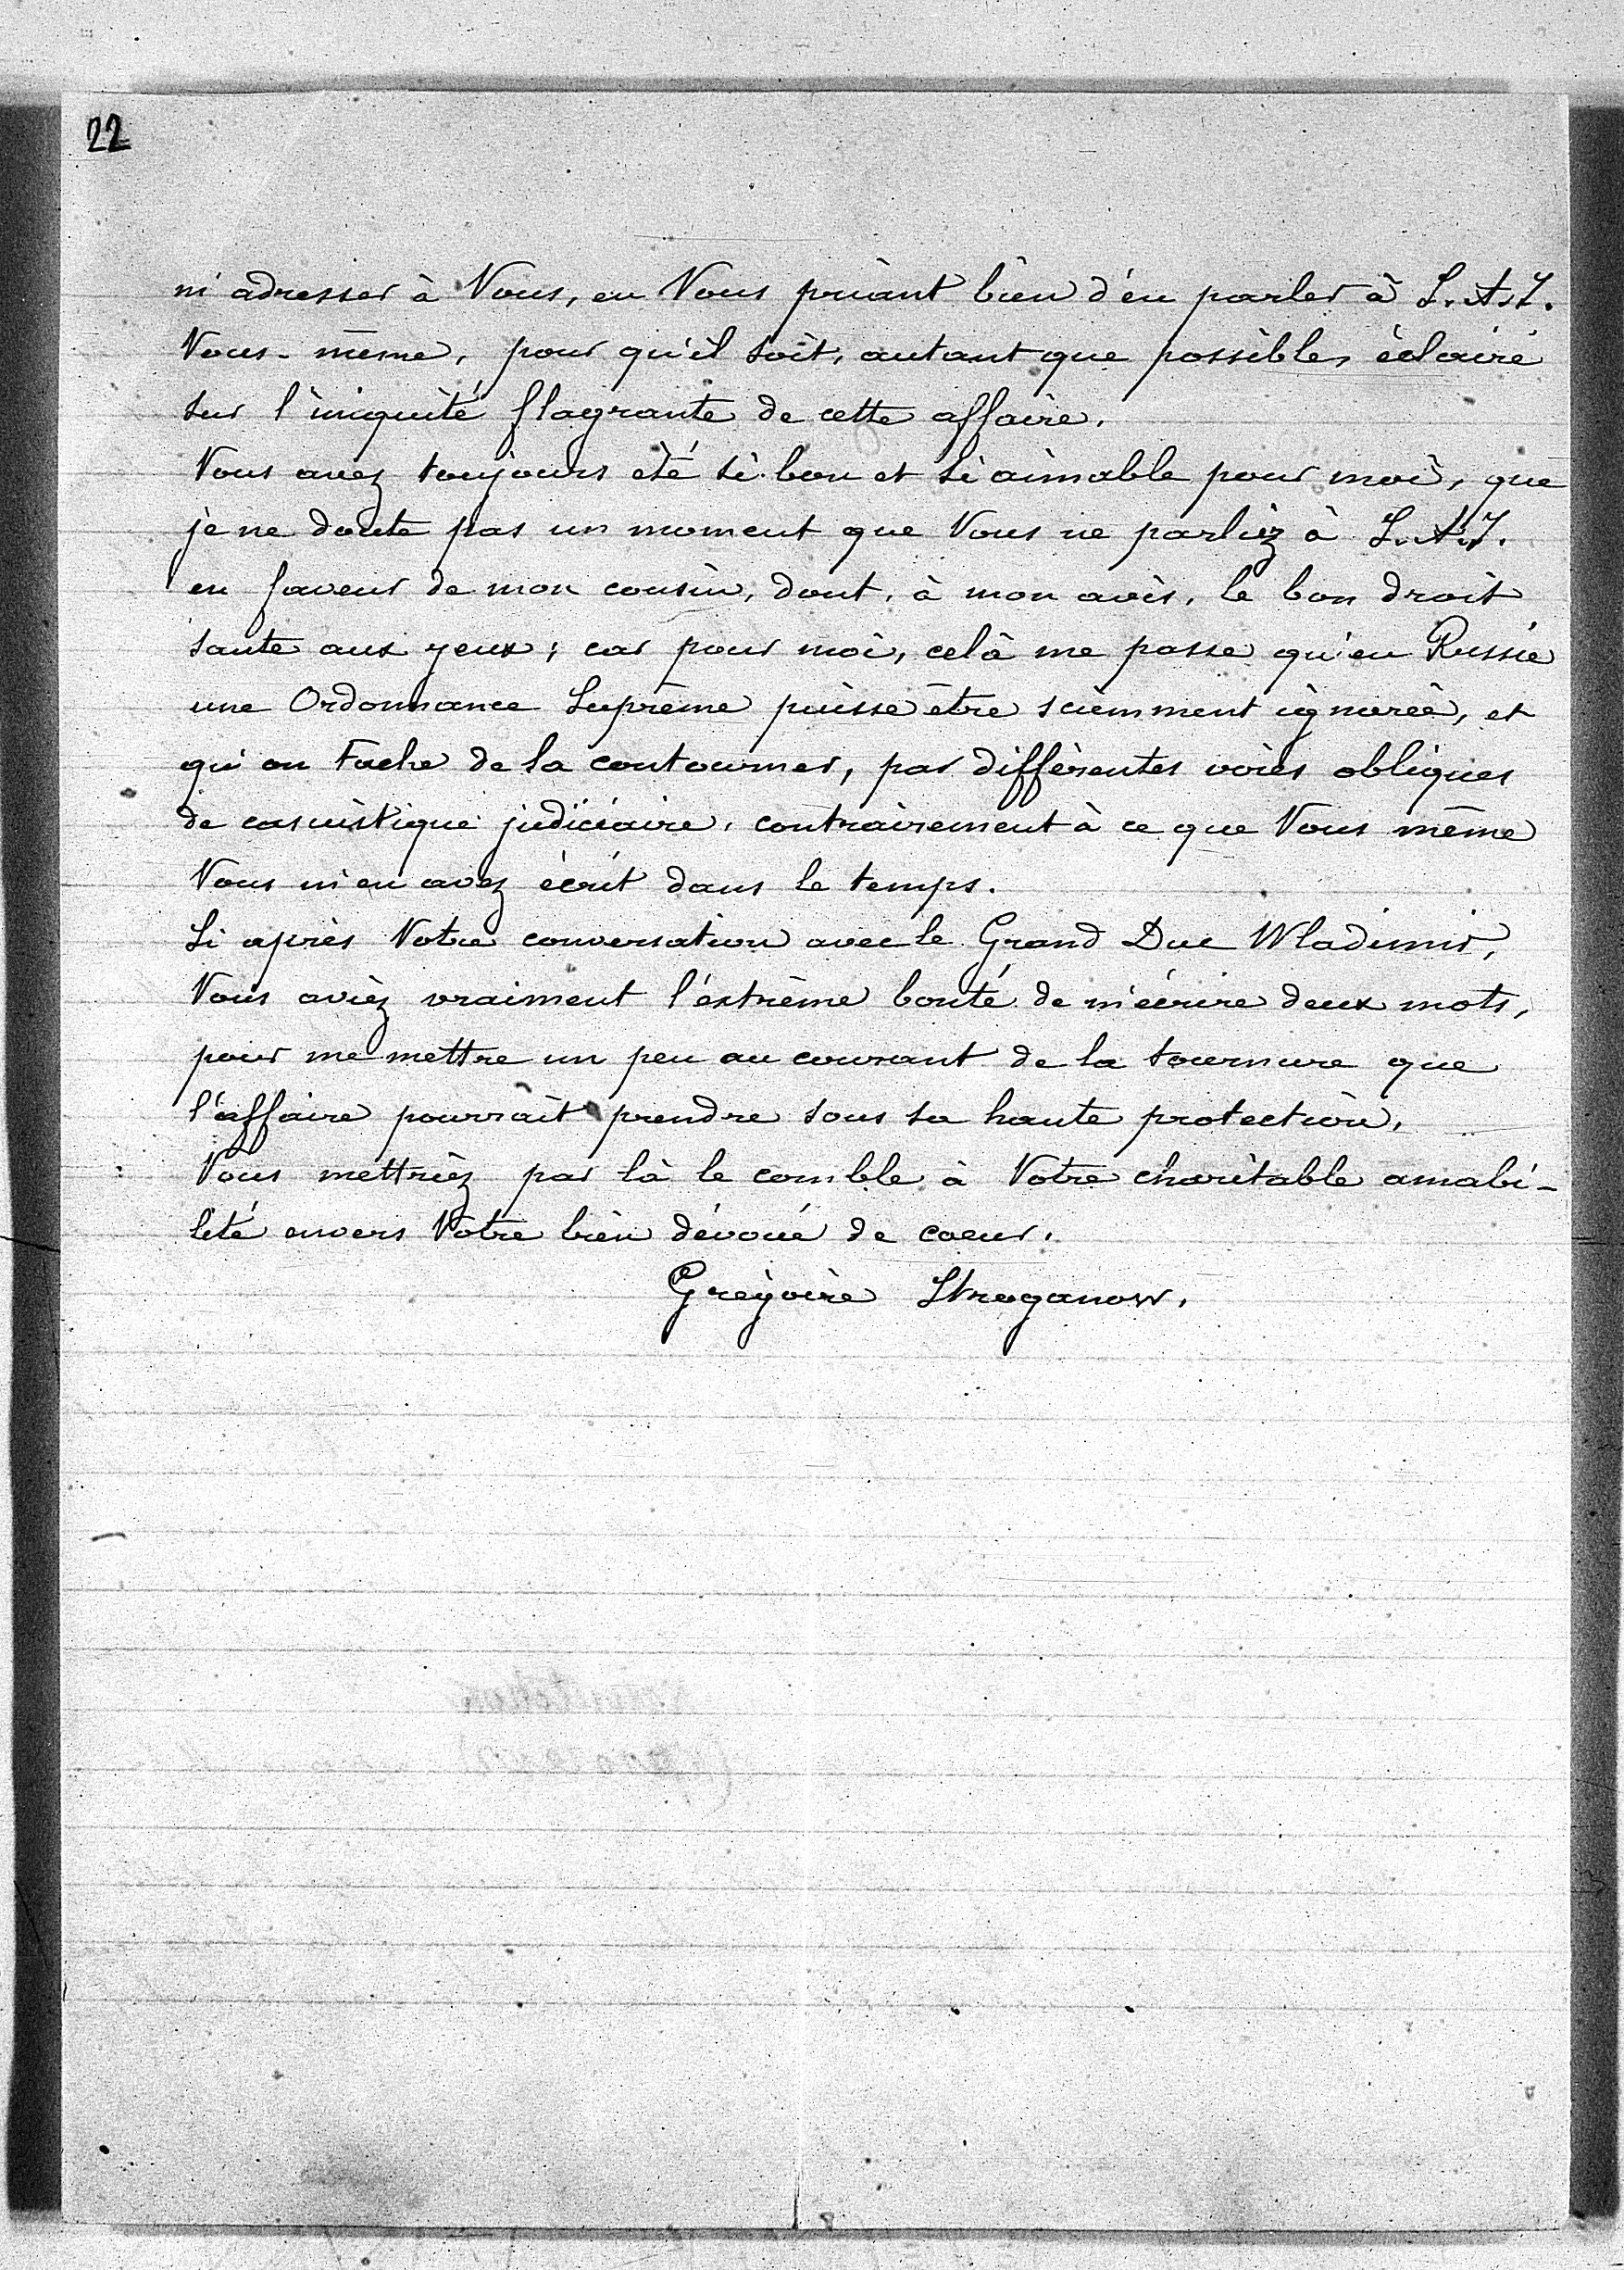 22
m'adresser à Vous, en Vous priant bien d'en parler à S. A. I.
Vous-même, pour qu'il soit, autant que possible, éclairé
sur l'iniquité flagrante de cette affaire.
Vous avez toujours été si bon et si aimable pour moi, que
je ne doute pas un moment que Vous ne parliez à S. A. I.
en faveur de mon cousin, dont, à mon avis, le bon droit
saute aux yeux; car pour moi, celà me passe qu'en Russie
une Ordonnance Suprême puisse être sciemment ignorée, et
qu'on tache de la contourner, par différentes voies obliques
de casuistique judiciaire, contrairement à ce que Vous même
Vous m'en avez écrit dans le temps.
Si après Votre conversation avec le Grand Duc Wladimir,
Vous aviez vraiment l'extrême bonté de m'écrire deux mots,
pour me mettre un peu au courant de la tournure que
l'affaire pourrait prendre sous sa haute protection,
Vous mettriez par là le comble à Votre charitable amabi-
lité envers Votre bien dévoué de coeur.
Grégoire Stroganow.